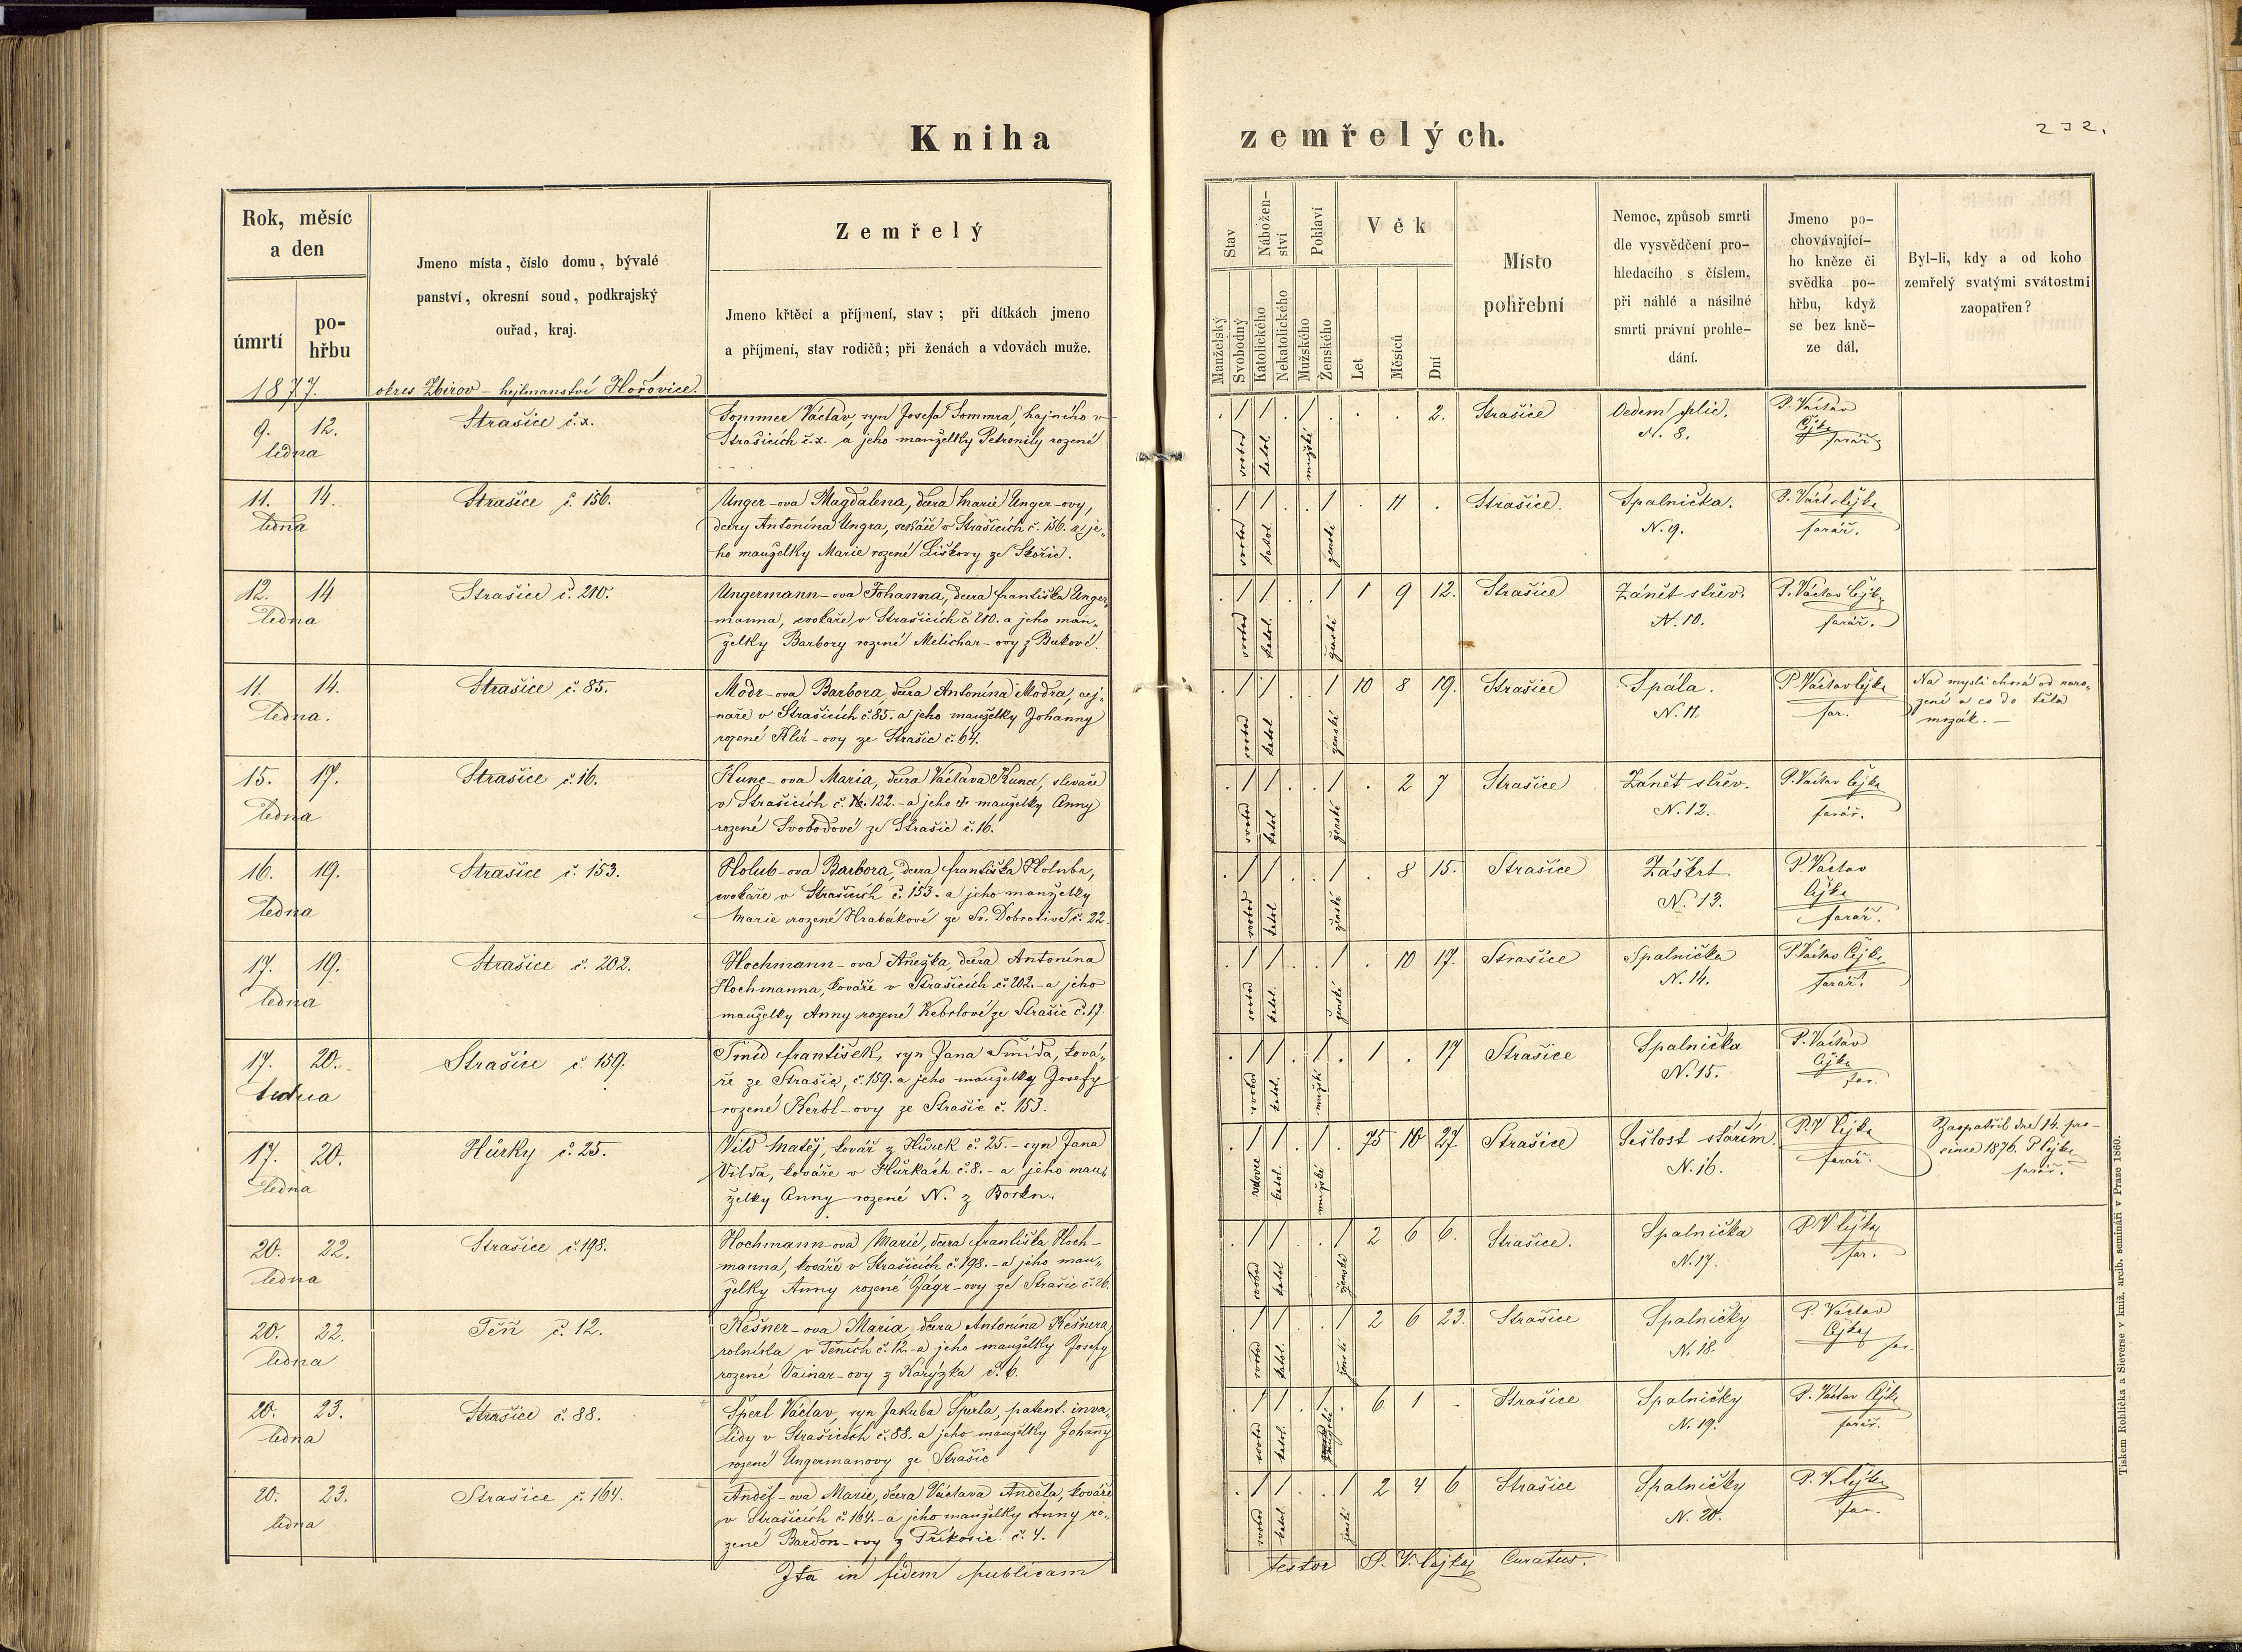 Kniha
zemřelých.
232.
Rok, měsíc
a den
úmrtí
po-
hřbu
Jmeno místa, číslo domu, bývalé
panství, okresní soud, podkrajský
ouřad, kraj.
Zemřelý
Jmeno křtěcí a příjmení, stav; při dítkách jmeno
a příjmení, stav rodičů; při ženách a vdovách muže.
Stav
Nábožen-
ství
Pohlaví
Věk
Manželský
Svobodný
Katolického
Nekatolického
Mužského
Ženského
Let
Měsíců
Dní
Místo
pohřební
Nemoc, způsob smrti
dle vysvědčení pro-
hledacího s číslem,
při náhlé a násilné
smrti právní prohle-
dání.
Jmeno po-
chovávající-
ho kněze či
svědka po-
hřbu, když
se bez kně-
ze dál.
Byl-li, kdy a od koho
zemřelý svatými svátostmi
zaopatřen?
1877. okres Zbirov - hejtmanství Hořovice.
9. 12.
ledna
Strašice č.x.
Sommer Václav, syn Josefa Sommra, hajného v
Strašicích č.x. a jeho manželky Petronily rozené
. . .
svobod katol. mužské
. / / . / . . . 2. Strašice
Oedem plic.
N. 8.
P. Václav
Čejka
farář
11. 14.
ledna
Strašice č. 156.
Unger-ova Magdalena, dcera Marie Unger-ovy,
dcery Antonína Ungra, v Strašicích č. 156. a je-
ho manželky Marie rozené Liškovy ze Skořic.
svobod katol. ženské
. / / . . / . 11 . Strašice.
Spalnička.
N. 9.
P. Václ. Čejka
farář.
12. 14
ledna
Strašice č. 210.
Ungermann-ova Johanna, dcera Františka Unger-
manna, cvokaře v Strašicích č. 210. a jeho man-
želky Barbory rozené Melichar-ovy z Bukové.
svobod katol. ženské
. / / . . / 1 9 12. Strašice
Zánět střev.
N. 10.
P. Václav Čejka
farář.
11. 14.
ledna.
Strašice č. 85.
Modr-ova Barbora, dcera Antonína Modra, cej-
naře v Strašicích č. 85. a jeho manželky Johanny
rozené Klír-ovy ze Strašic č. 64.
svobod katol ženské
. / / . . / 10 8 19. Strašice
Spála.
N. 11.
P. Václav Čejka
far.
Na mysli chorá od naro-
zení a co do těla
mrzák. -
15. 17.
ledna
Strašice č. 16.
Kunc-ova Maria, dcera Václava Kunce, slevače
v Strašicích č. 122. - a jeho manželky Anny
rozené Svobodové ze Strašic č. 16.
svobod katol ženské
. / / . . / . 2 7 Strašice
Zánět střev.
N. 12.
P. Václav Čejka
farář.
16. 19.
ledna
Strašice č. 153.
Holub-ova Barbora, dcera Františka Holuba,
cvokaře v Strašicích č. 153. a jeho manželky
Marie rozené Hrabákové ze Sv. Dobrotivé č. 22.
svobod katol ženské
. / / . . / . 8 15. Strašice
Záškrt.
N. 13.
P. Václav
Čejka
farář.
17. 19.
ledna
Strašice č. 202.
Hochmann-ova Anežka, dcera Antonína
Hochmanna, kováře v Strašicích č. 202. - a jeho
manželky Anny rozené Kebrlové ze Strašic č. 17.
svobod katol. ženské
. / / . . / . 10 17. Strašice
Spalnička
N. 14.
P. Václav Čejka
farář.
17. 20.
ledna
Strašice č. 159.
Šmíd František, syn Jana Šmída, ková-
ře ze Strašic, č. 159. a jeho manželky Josefy
rozené Kerbl-ovy ze Strašic č. 153.
svobod katol. mužské
. / / . / . 1 . 17 Strašice
Spalnička
N. 15.
P. Václav
Čejka
far.
17. 20.
ledna
Hůrky č. 25.
Vild Matěj, kovář z Hůrek č. 25. - syn Jana
Vilda, kováře v Hůrkách č. 8. - a jeho man-
želky Anny rozené N. z Borku.
vdovec katol. mužské
. / / . / . 75 10 27. Strašice
Sešlost stářím.
N. 16.
P. V Čejka
farář.
Zaopatřil dne 14. pro-
since 1876. P Čejka
farář.
20. 22.
ledna
Strašice č. 198.
Hochmann-ova Marie, dcera Františka Hoch-
manna, kováře v Strašicích č. 198. - a jeho man-
želky Anny rozené Jágr-ovy ze Strašic č. 26.
svobod katol ženské
. / / . / 2 6 6. Strašice.
Spalnička
N. 17.
P. V Čejka
far.
20. 22.
ledna
Těň č. 12.
Kešner-ova Maria, dcera Antonína Kešnera,
rolníka v Těních č. 12. - a jeho manželky Josefy
rozené Vainar-ovy z Karýzka č. 6.
svobod katol. ženské
. / / . / 2 6 23. Strašice
Spalničky
N. 18.
P. Václav
Čejka far.
20. 23.
ledna
Strašice č. 88.
Šperl Václav, syn Jakuba Šperla, patent. inva-
lidy v Strašicích č. 88. a jeho manželky Johany
rozené Ungermanovy ze Strašic
svobod katol. mužské
. / / . / . 6 1 . Strašice
Spalničky
N. 19.
P. Václav Čejka
farář.
20. 23.
ledna
Strašice č. 164.
Anděl-ova Marie, dcera Václava Anděla, kováře
v Strašicích č. 164. - a jeho manželky Anny ro-
zené Bardon-ovy z Příkosic č. 4.
svobod katol ženské
. / / . / 2 4 6 Strašice
Spalničky
N. 20.
P. V. Čejka
far.
Ita in fidem publicam
testor P. V. Čejka Curatus.
Tiskem Rohlíčka a Sieverse v kníž. arcib. semináři v Praze 1860.